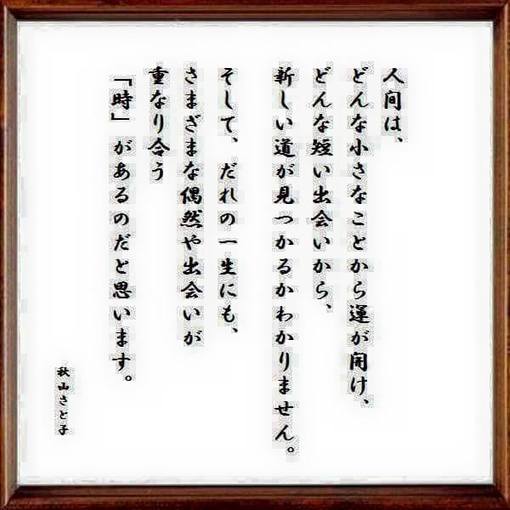 人間は、
どんな小さなことから運が開け、
どんな短い出会いから、
新しい道が見つかるかわかりません。
そして、だれの一生にも、
さまざまな偶然や出会いが
重なり合う
「時」があるのだと思います。
秋山さと子